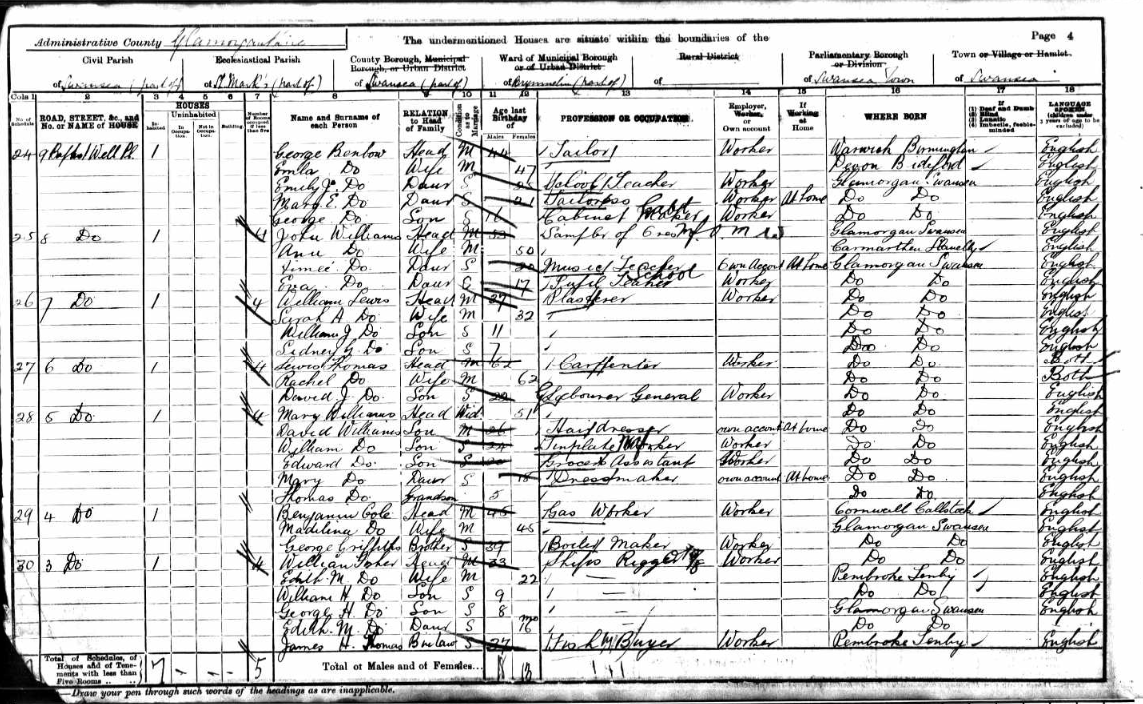 Administrative County Glamorganshire The undermentioned Houses are situate within the boundaries of the Page 4
Civil Parish Ecclesiastical Parish County Borough, Municipal Borough, or Urban District Ward of Municipal Borough or of Urban District Rural District Parliamentary Borough or Division Town or Village or Hamlet
of Swansea (part of) of St Mark's (part of) of Swansea (part of) of (part of) of of Swansea Town of Swansea
Cols 1 2 3 4 5 6 7 8 9 10 11 12 13 14 15 16 17 18
No. of Schedule ROAD, STREET, &c., and No. or NAME of HOUSE HOUSES Inhabited Uninhabited In Occupation Not in Occupation Building Number of Rooms occupied if less than five Name and Surname of each Person RELATION to Head of Family Condition as to Marriage Age last Birthday of Males Females PROFESSION OR OCCUPATION Employer, Worker, or Own account If Working at Home WHERE BORN If (1) Deaf and Dumb (2) Blind (3) Lunatic (4) Imbecile, feeble-minded LANGUAGE SPOKEN (children under 3 years of age to be excluded)
24 9 Well Pl. 1 George Benlow Head M 44 Tailor Worker Warwick Birmingham English
Emla Do Wife M 47 Devon Bideford English
Emily J. Do Daur S School Teacher Worker Glamorgan Swansea English
Mary E. Do Daur S 21 Tailoress Worker At home Do Do English
George Do Son S 16 Cabinet Maker Worker Do Do English
25 8 Do 1 4 John Williams Head M 53 Sampler of Ores Glamorgan Swansea English
Ann Do Wife M 50 Carmarthen Llanelly English
Do Daur S 20 Music Teacher Own Account At home Glamorgan Swansea English
Do Daur S 17 Pupil Teacher School Worker Do Do English
26 7 Do 1 4 William Lewis Head M 37 Plasterer Worker Do Do English
Sarah A Do Wife M 32 Do Do English
William J Do Son S 11 Do Do English
Sidney G Do Son S 7 Do Do English
27 6 Do 1 4 Lewis Thomas Head M 62 Carpenter Worker Do Do Both
Rachel Do Wife M 62 Do Do Both
David J Do Son S Labourer General Worker Do Do English
28 5 Do 4 Mary Williams Head Wid 51 Do Do English
David Williams Son M 26 Hairdresser own account At home Do Do English
William Do Son S 24 Tinplate Worker Worker Do Do English
Edward Do Son S 20 Grocers Assistant Worker Do Do English
Mary Do Daur S 18 Dressmaker own account At home Do Do English
Thomas Do Grandson 5 Do Do English
29 4 Do 1 Benjamin Cole Head M 45 Gas Worker Worker Cornwall Callstock English
Madilina Do Wife M 45 Glamorgan Swansea English
George Griffiths Brother S 39 Boiler Maker Worker Do Do English
30 3 Do 1 4 William Head M 33 Ships Rigger Worker Do Do English
Edith M. Do Wife M 22 Pembroke Tenby English
William H. Do Son S 9 Do Do English
George H. Do Son S 8 Glamorgan Swansea English
Edith. M. Do Daur S 16 mo Do Do
James H. Thomas Brolaw S 27 Fish Buyer Worker Pembroke Tenby English
Total of Schedules, of Houses and of Tenements with less than Five Rooms 7 7 - - - 5 Total of Males and of Females... 18 13
—Draw your pen through such words of the headings as are inapplicable.